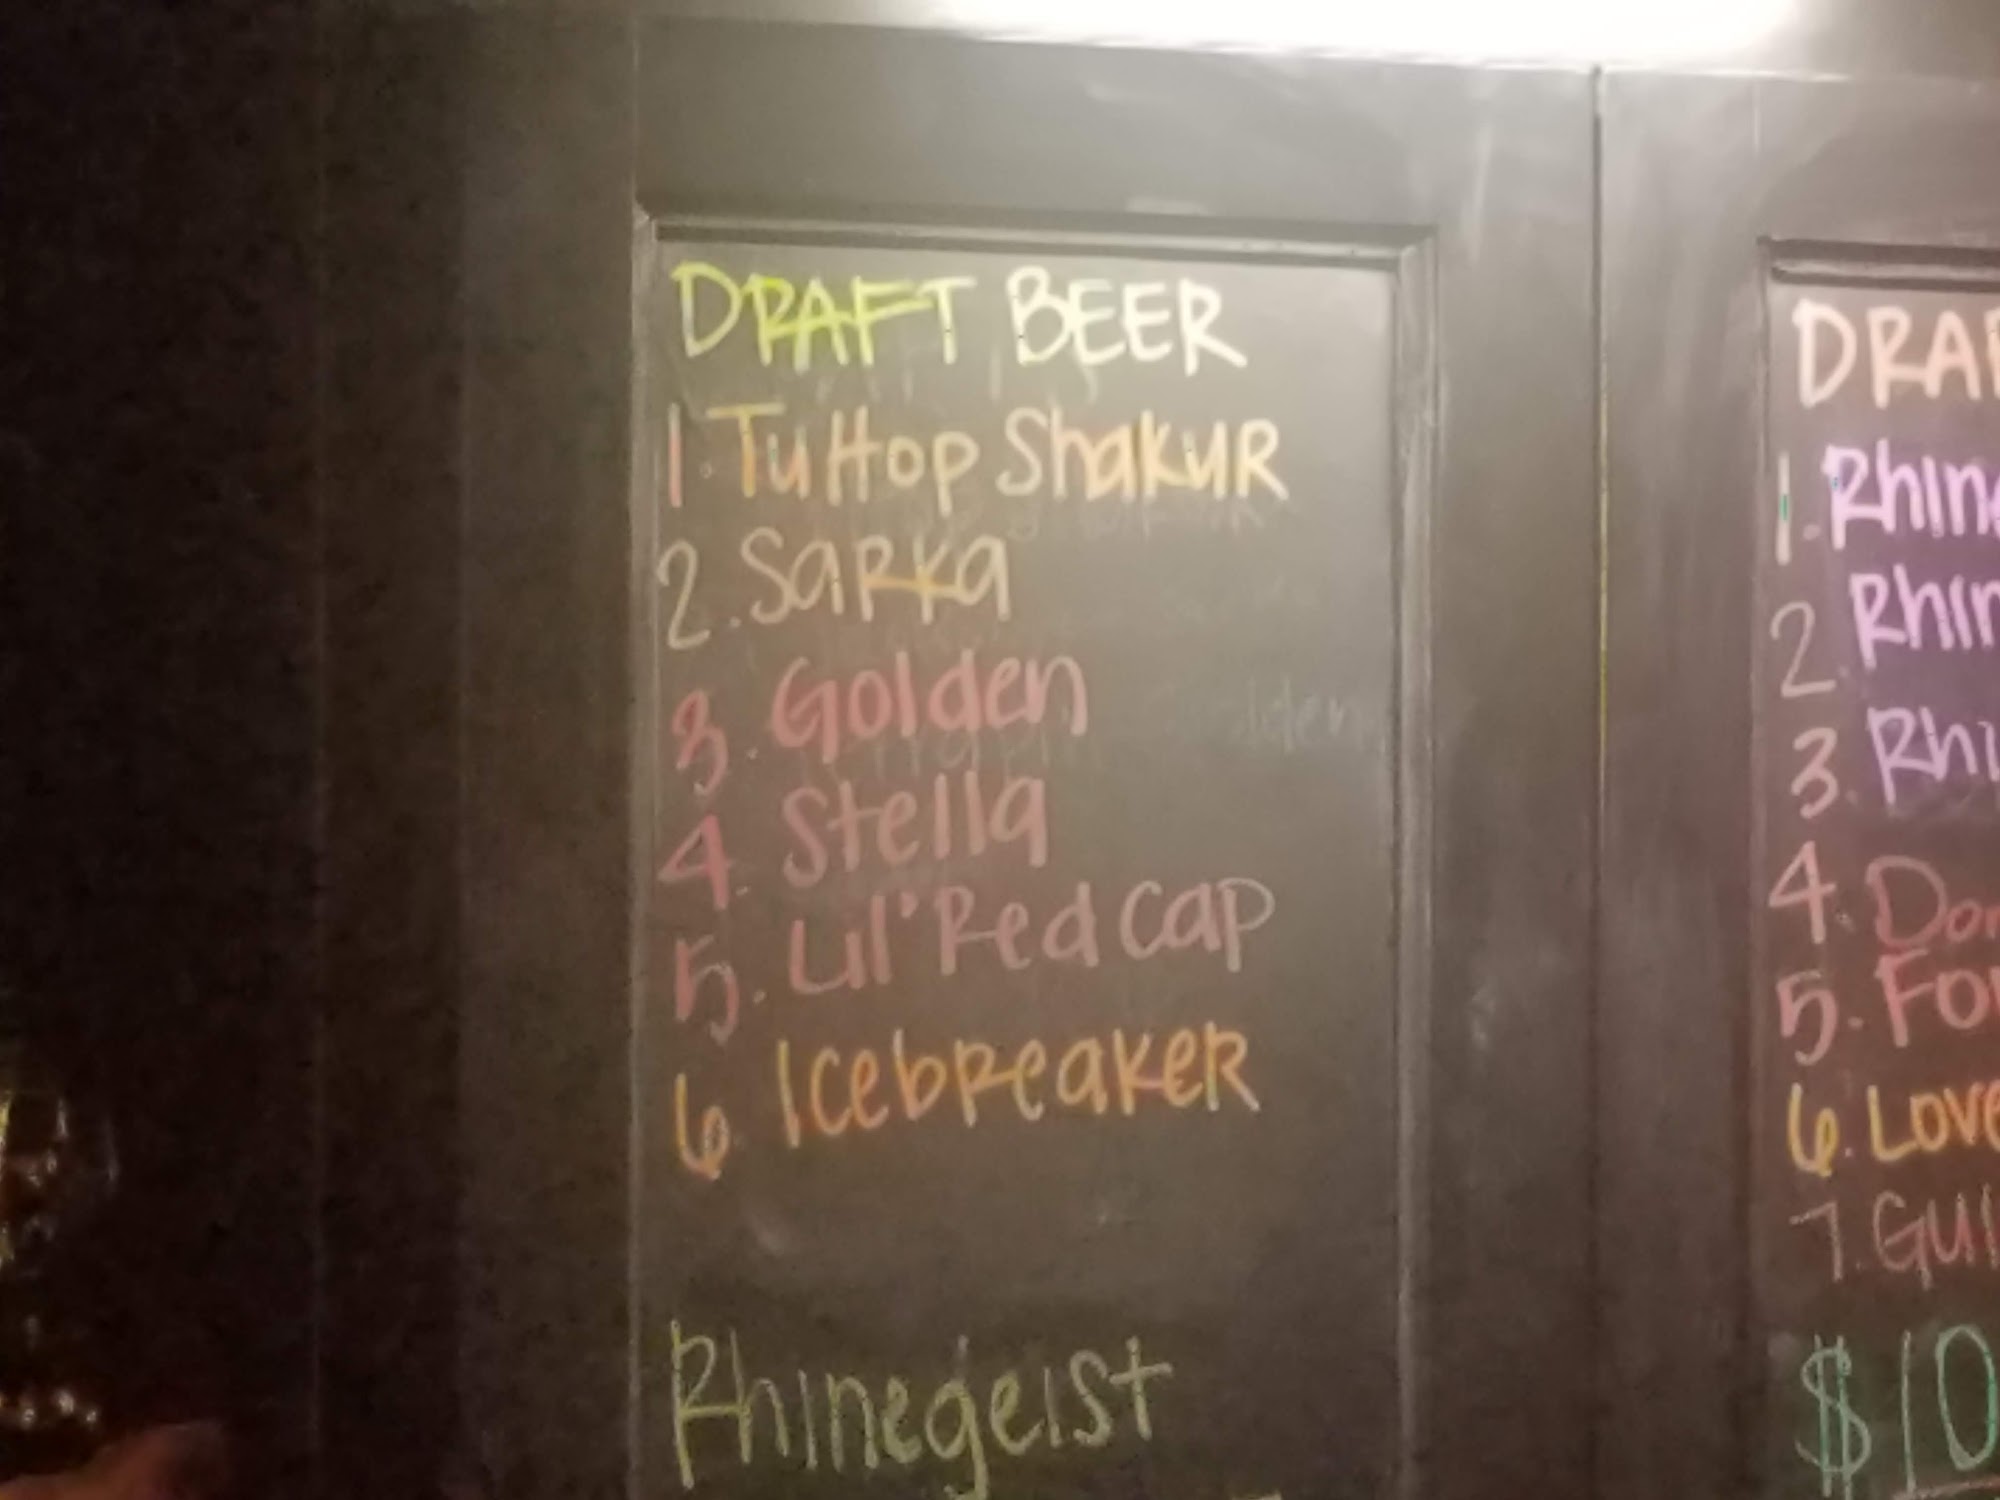 DRAFT BEER
1. TuHop Shakur
2. Sarka
3. Golden
4. Stella
5. Lil' Red Cap
6. Icebreaker
Rhinegeist
1.
2.
3.
4.
5.
6. Love
7.
$10